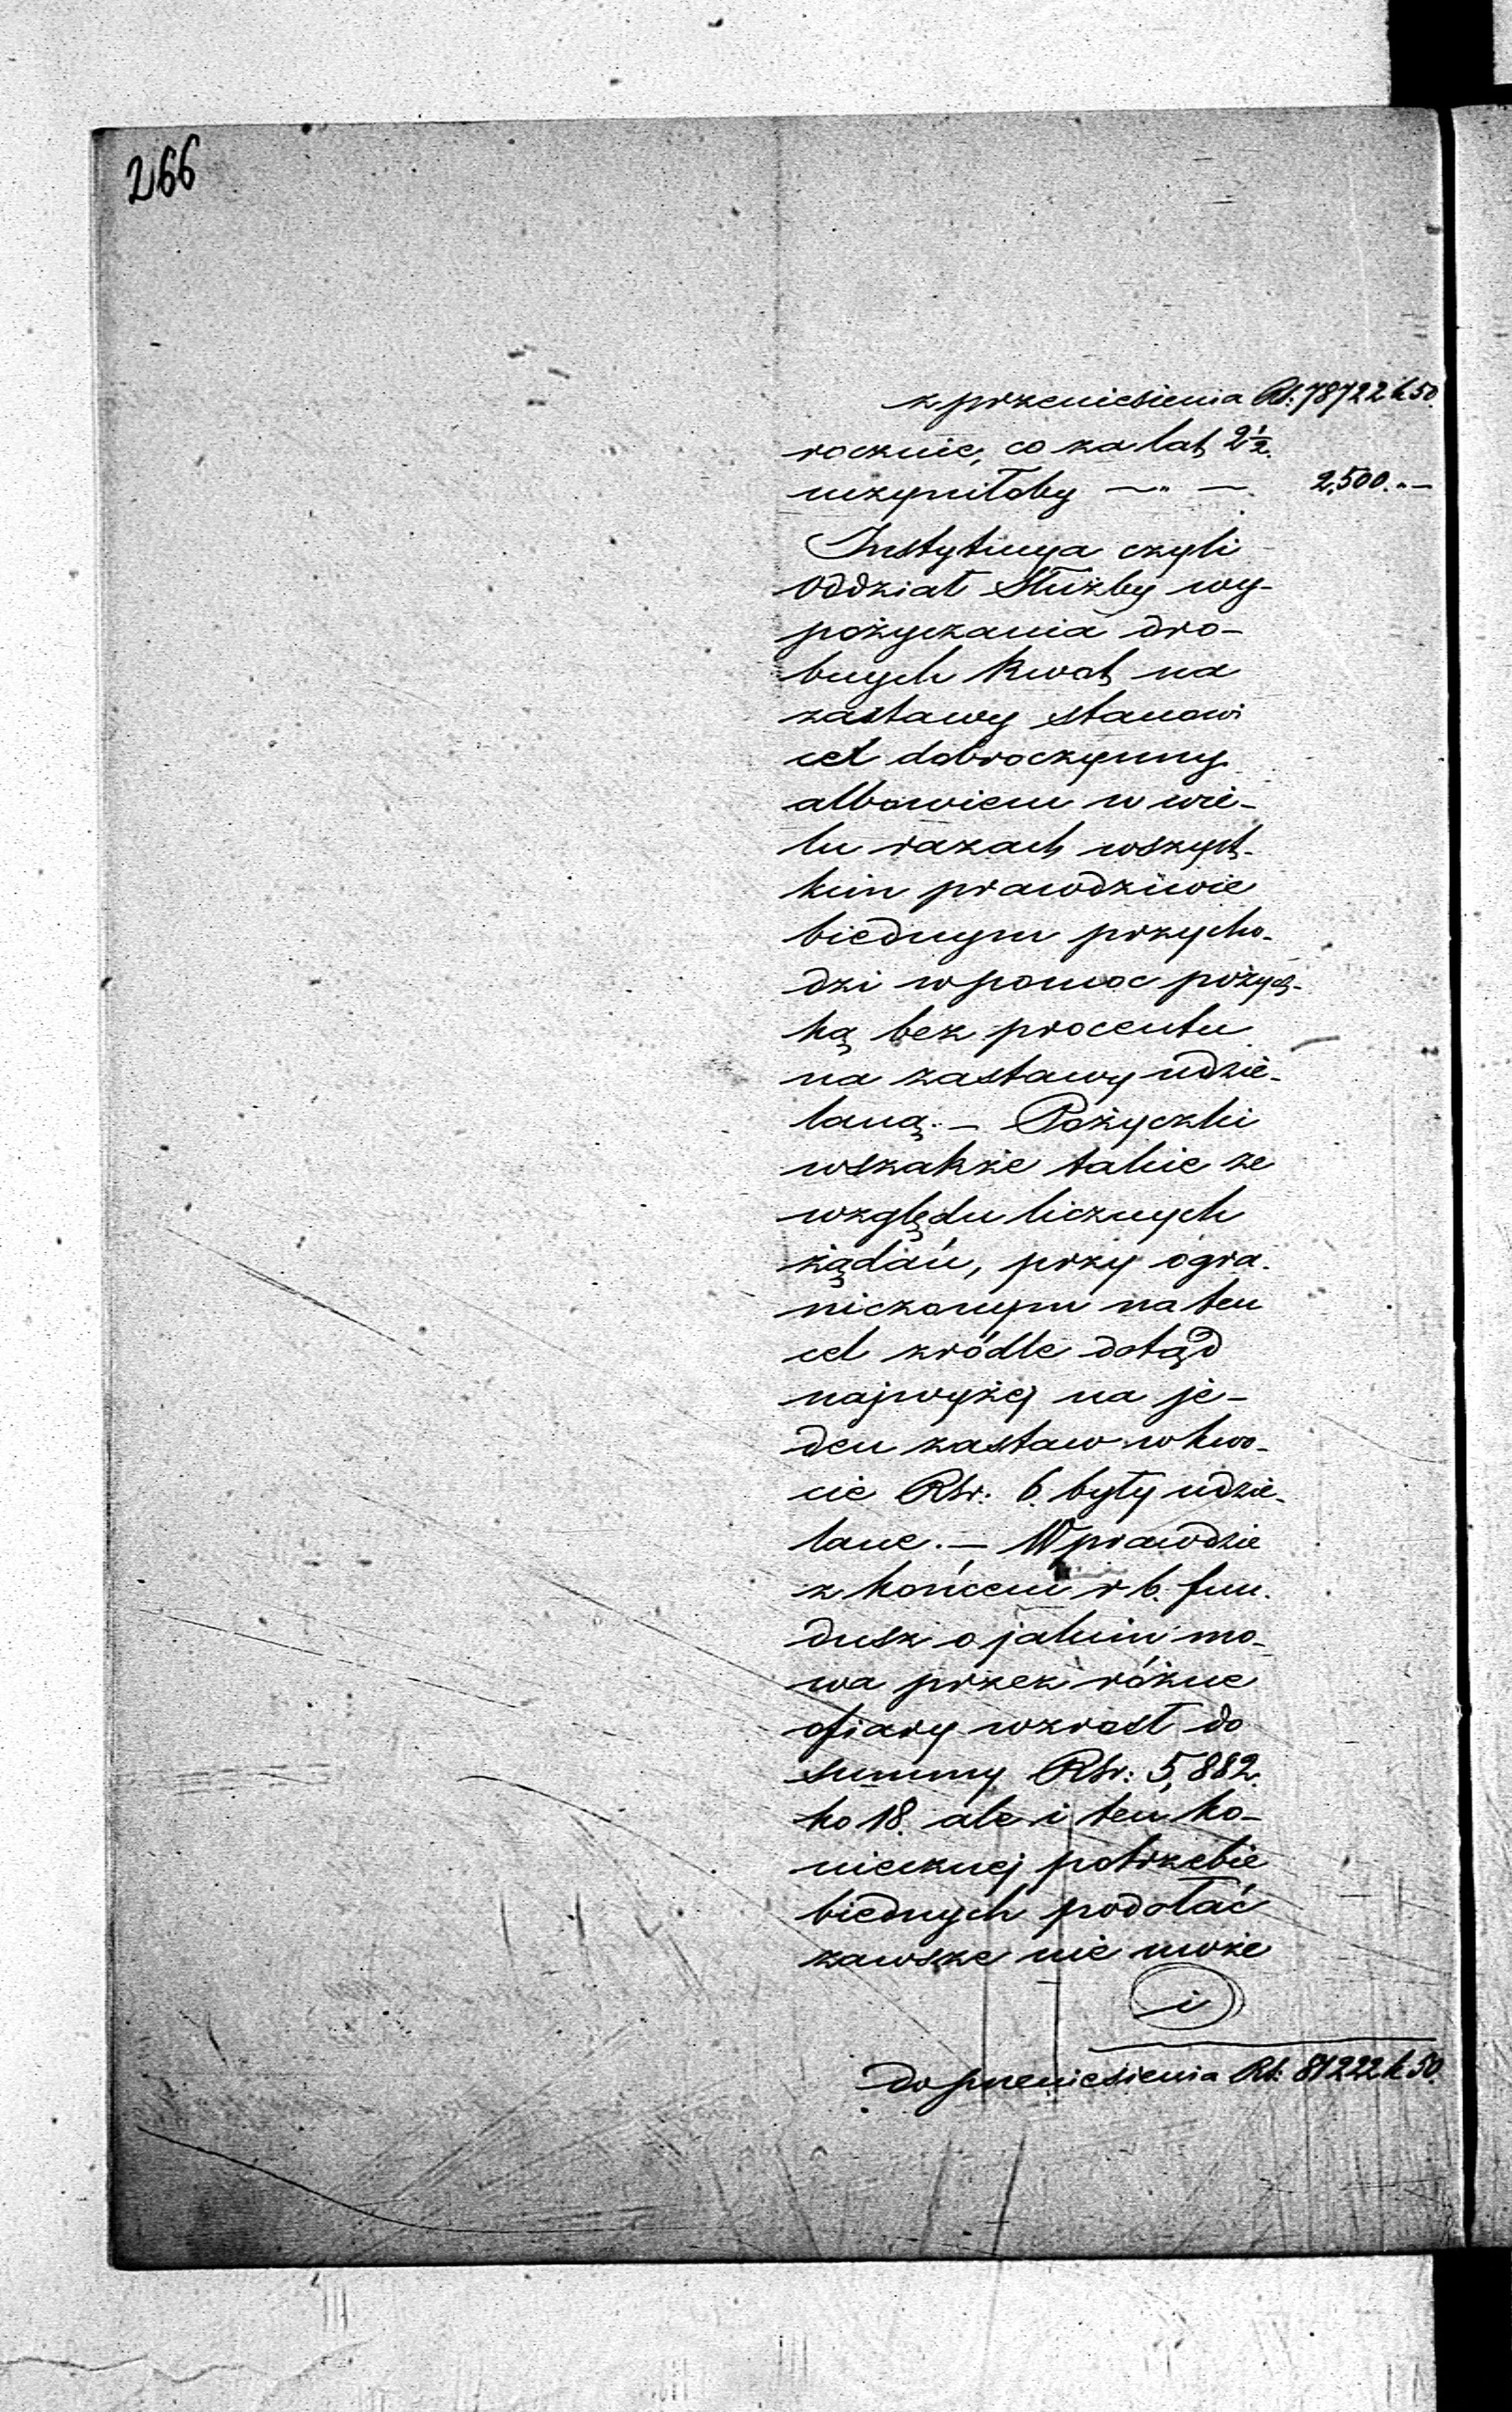 266
z przeniesienia Rs: 78722 k 50.
rocznie, co za lat 2½.
uczyniłoby —„ —. 2,500. „ —
Instytucya czyli
Oddział Służby wy-
pożyczania dro-
bnych kwot na
zastawy stanowi
cel dobroczynny
albowiem w wie-
lu razach wszyst-
kim prawdziwie
biednym przycho-
dzi w pomoc pożycz-
ką bez procentu
na zastawy udzie-
laną. — Pożyczki
wszakże takie ze
względu licznych
żądań, przy ogra-
niczonym na ten
cel źródle dotąd
najwyżej na je-
den zastaw w kwo-
cie RSr: 6. były udzie-
lane. — Wprawdzie
z końcem r b. fun-
dusz o jakim mo-
wa przez różne
ofiary wzrosł do
summy RSr: 5,882.
ko 18. ale i ten ko-
niecznej potrzebie
biednych podołać
zawsze nie może
i
do przeniesienia Rs: 81222 k 50.